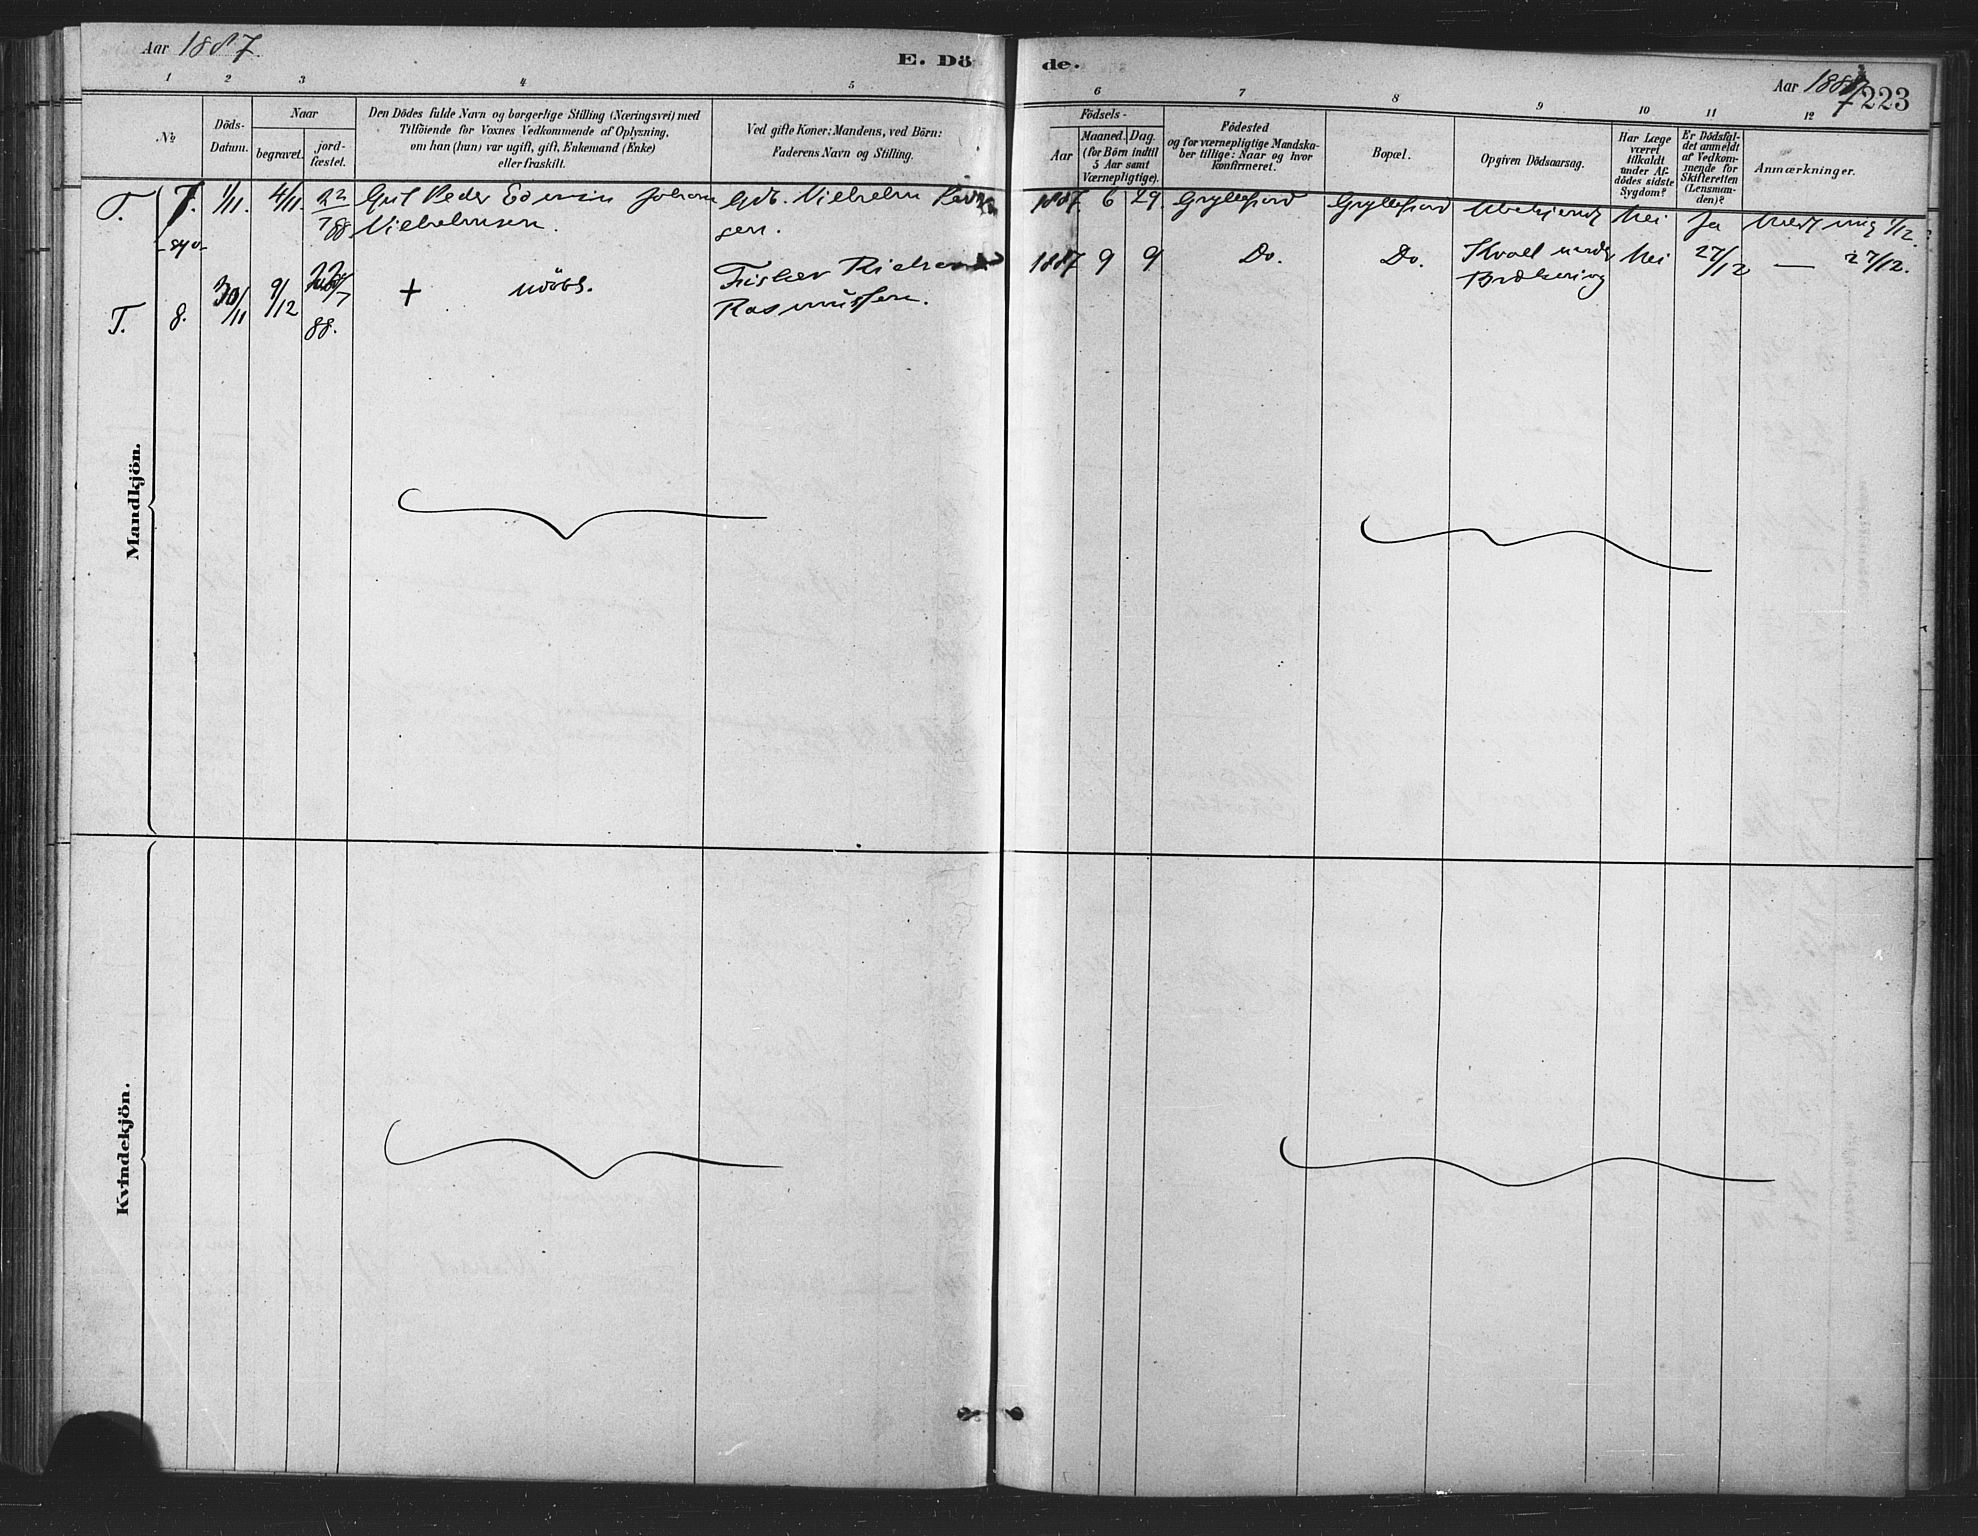 Aar 1887.
E. Döde.
Aar 1887
223
1 2 3 4 5 6 7 8 9 10 11 12
№
Döds-Datum.
Naar
begravet.
jord-fæstet.
Den Dödes fulde Navn og borgerlige Stilling (Næringsvei) med
Tilföiende for Voxnes Vedkommende af Oplysning,
om han (hun) var ugift, gift, Enkemand (Enke)
eller fraskilt.
Ved gifte Koner: Mandens, ved Börn:
Faderens Navn og Stilling.
Födsels-
Aar
Maaned. Dag.
(for Börn indtil
5 Aar samt
Værnepligtige).
Födested
og for værnepligtige Mandska-
ber tillige: Naar og hvor
konfirmeret.
Bopæl.
Opgiven Dödsaarsag.
Har Læge
været
tilkaldt
under Af-
dödes sidste
Sygdom?
Er Dödsfal-
det anmeldt
af Vedkom-
mende for
Skifteretten
(Lensman-
den)?
Anmærkninger.
T. 7. 1/11. 4/11. 22 Gut Peder Edvin Johan Gdb. Vilhelm 1887. 6 29. Gryllefjord Gryllefjord Ubekjendt Nei Ja Meldt mig 1/12.
7/88 Vilhelmsen.
1887 9 9 Do. Do. Kvalt under Nei 27/12 — 27/12.
Brækning
T. 8. 30/11 9/12 88. + udöbt. Fisker
Rasmussen.
Mandkjön.
Kvindekjön.